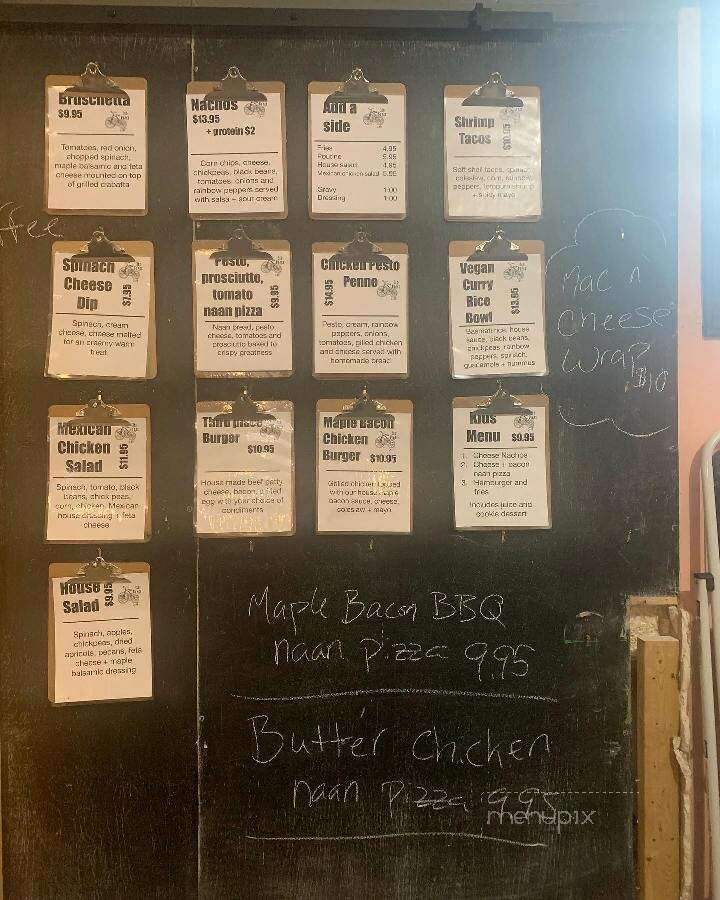 Bruschetta
$9.95
Tomatoes, red onion,
chopped spinach,
maple balsamic and feta
cheese mounted on top
of grilled ciabatta
Nachos
$13.95
+ protein $2
Corn chips, cheese,
chickpeas, black beans,
tomatoes, onions and
rainbow peppers served
with salsa + sour cream
Add a
side
Fries 4.95
Poutine 5.95
House salad 4.95
Mexican chicken salad 5.95
Gravy 1.00
Dressing 1.00
Shrimp
Tacos
$10.95
Soft shell tacos, spinach,
coleslaw, corn, rainbow
peppers, tempura shrimp
+ spicy mayo
ffee
Spinach
Cheese
Dip
$7.95
Spinach, cream
cheese, cheese melted
for an creamy warm
treat
Pesto,
prosciutto,
tomato
naan pizza
$9.95
Naan bread, pesto
cheese, tomatoes and
prosciutto baked to
crispy greatness
Chicken Pesto
Penne
$14.95
Pesto, cream, rainbow
peppers, onions,
tomatoes, grilled chicken
and cheese served with
homemade bread
Vegan
Curry
Rice
Bowl
$13.95
Basmati rice, house
sauce, black beans,
chickpeas, rainbow
peppers, spinach,
guacamole + hummus
Mac n
cheese
wrap
$10
Mexican
Chicken
Salad
$11.95
Spinach, tomato, black
beans, chick peas,
corn, chicken, Mexican
house dressing + feta
cheese
Third place
Burger
$10.95
House made beef patty
cheese, bacon, grilled
egg with your choice of
condiments
Maple Bacon
Chicken
Burger $10.95
Grilled chicken topped
with our house maple
bacon sauce, cheese,
coleslaw + mayo
Kids
Menu $9.95
1. Cheese Nachos
2. Cheese + bacon
naan pizza
3. Hamburger and
fries
Includes juice and
cookie dessert
House
Salad
$9.95
Spinach, apples,
chickpeas, dried
apricots, pecans, feta
cheese + maple
balsamic dressing
Maple Bacon BBQ
naan pizza 9.95
Butter chicken
naan pizza 9.95
menupix